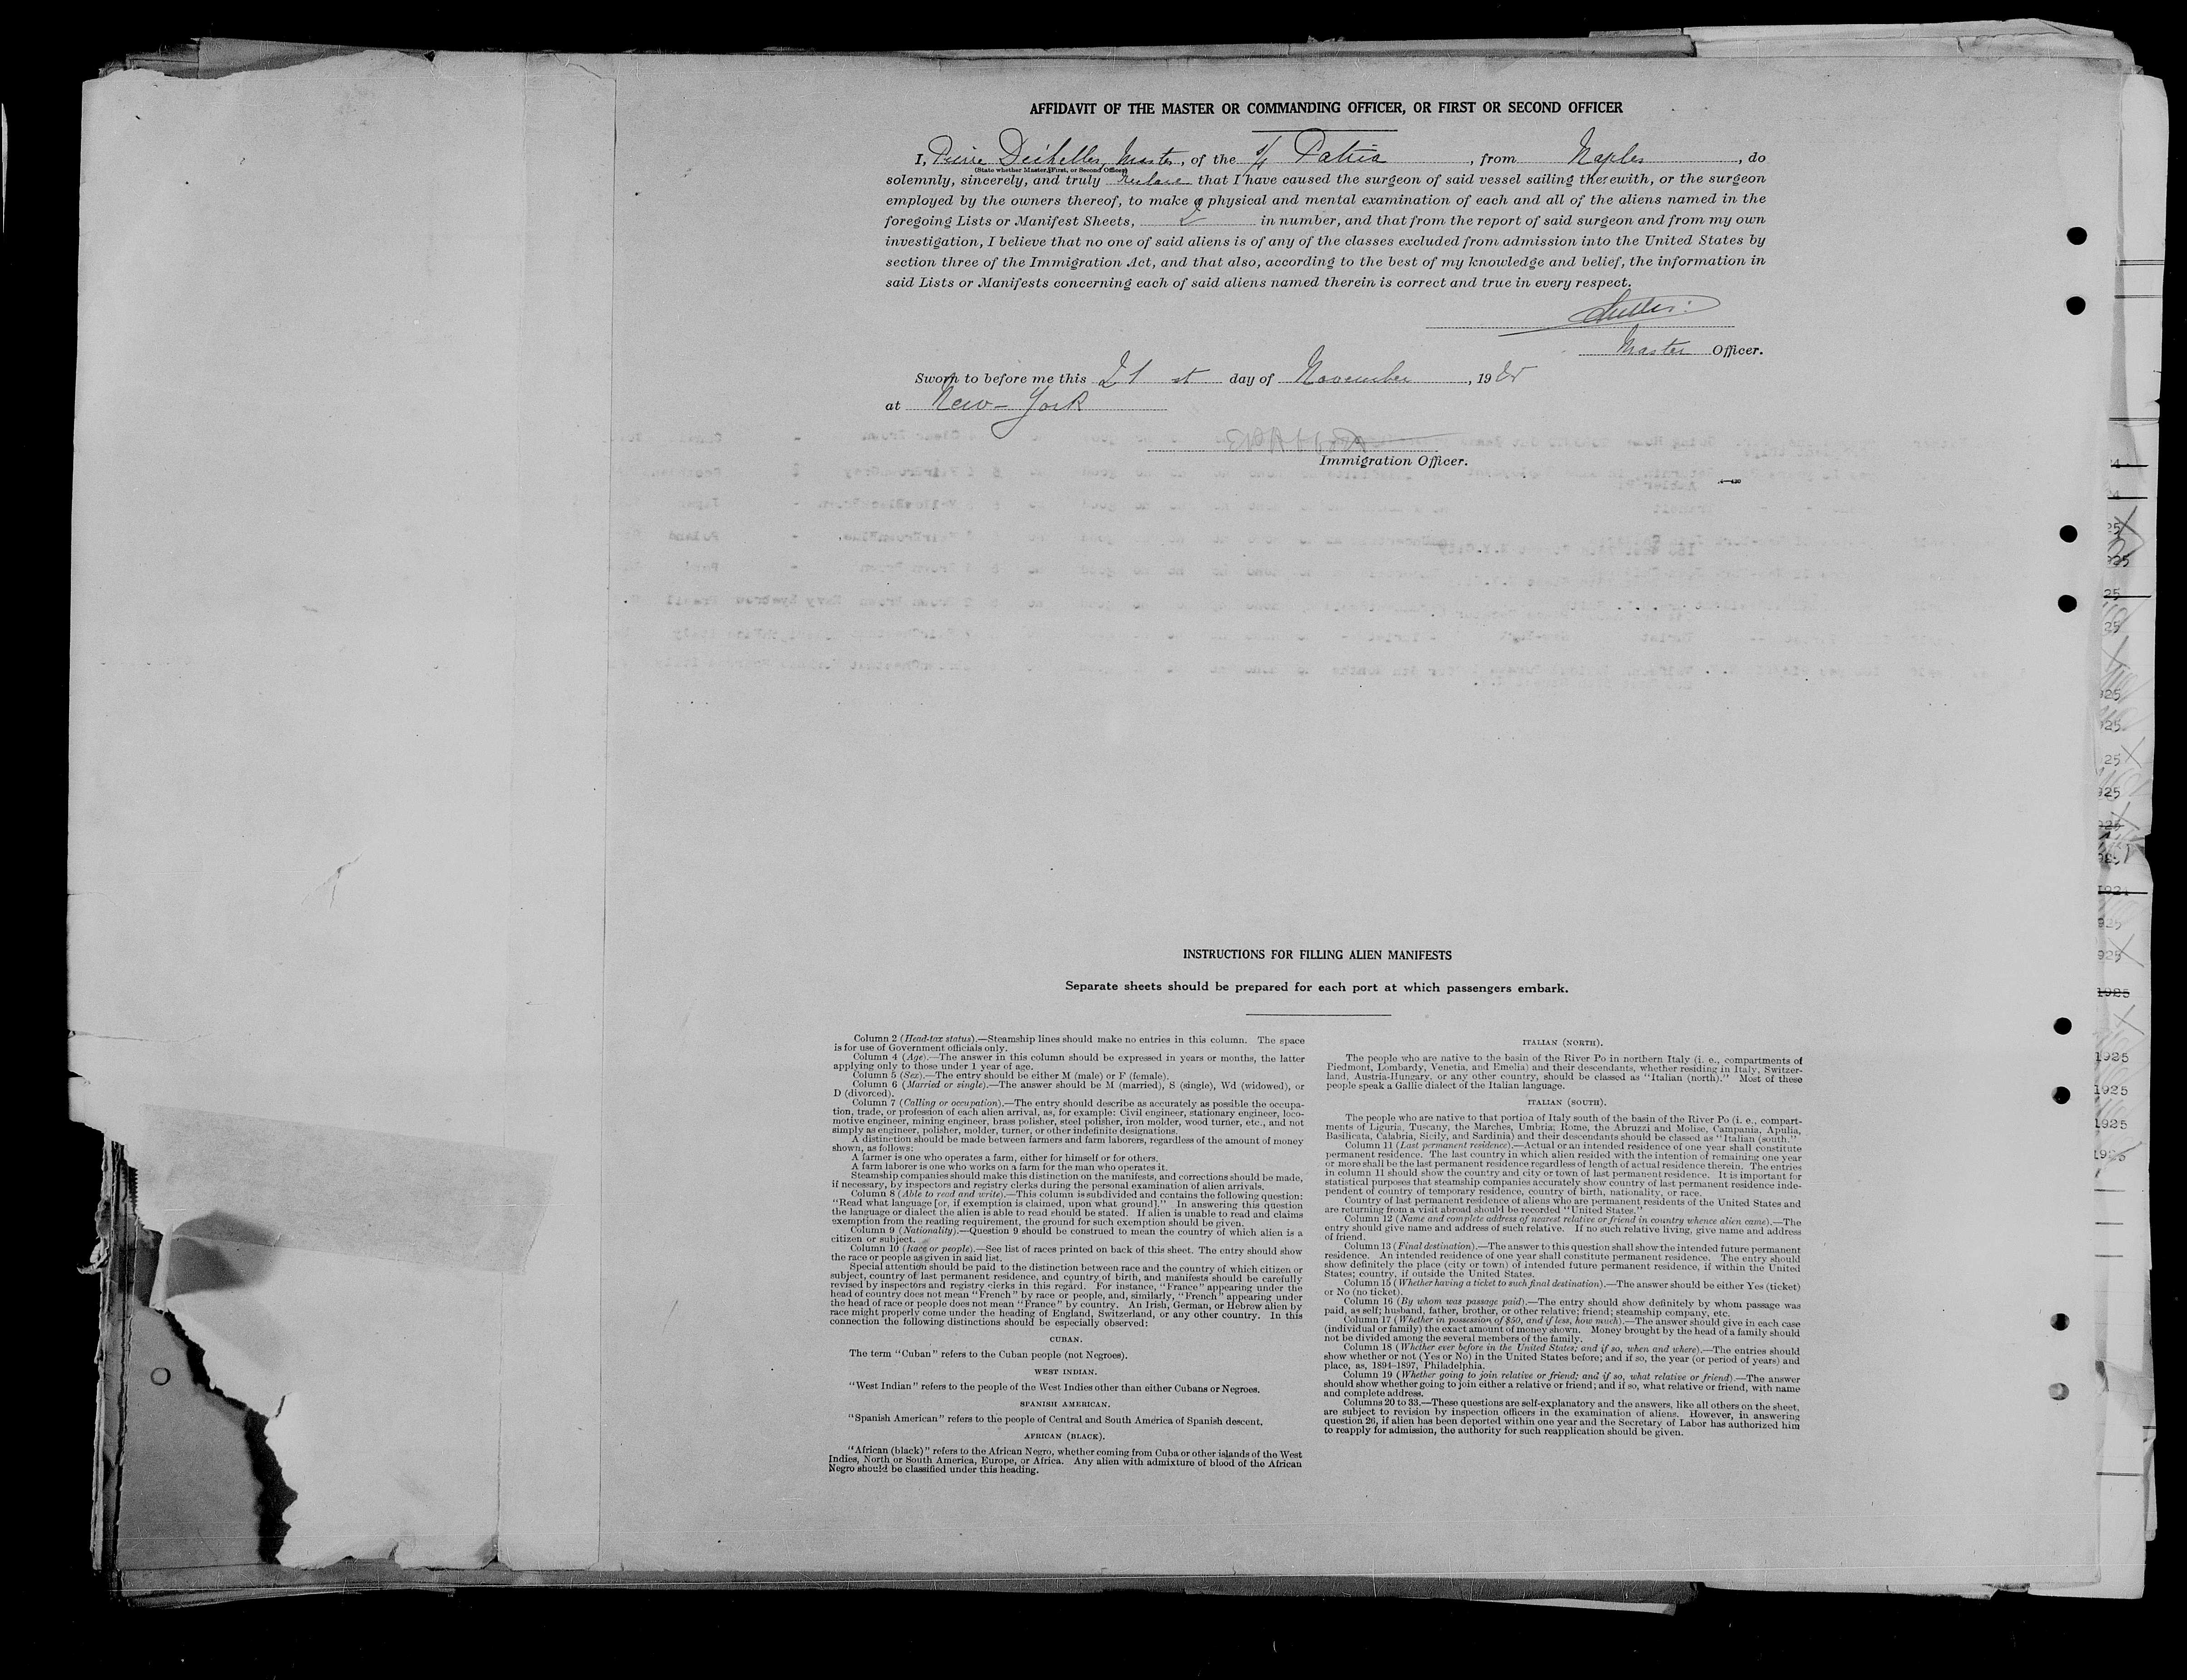 AFFIDAVIT OF THE MASTER OR COMMANDING OFFICER, OR FIRST OR SECOND OFFICER
I, Pierre Deihelles, Master, of the S/S Patria, from Naples, do
(State whether Master, First, or Second Officer)
solemnly, sincerely, and truly declare that I have caused the surgeon of said vessel sailing therewith, or the surgeon
employed by the owners thereof, to make a physical and mental examination of each and all of the aliens named in the
foregoing Lists or Manifest Sheets, 2 in number, and that from the report of said surgeon and from my own
investigation, I believe that no one of said aliens is of any of the classes excluded from admission into the United States by
section three of the Immigration Act, and that also, according to the best of my knowledge and belief, the information in
said Lists or Manifests concerning each of said aliens named therein is correct and true in every respect.
Master Officer.
Sworn to before me this 21 st day of November, 1925
at New-York
Immigration Officer.
INSTRUCTIONS FOR FILLING ALIEN MANIFESTS
Separate sheets should be prepared for each port at which passengers embark.
Column 2 (Head-tax status).—Steamship lines should make no entries in this column. The space
is for use of Government officials only.
Column 4 (Age).—The answer in this column should be expressed in years or months, the latter
applying only to those under 1 year of age.
Column 5 (Sex).—The entry should be either M (male) or F (female).
Column 6 (Married or single).—The answer should be M (married), S (single), Wd (widowed), or
D (divorced).
Column 7 (Calling or occupation).—The entry should describe as accurately as possible the occupa-
tion, trade, or profession of each alien arrival, as, for example: Civil engineer, stationary engineer, loco-
motive engineer, mining engineer, brass polisher, steel polisher, iron molder, wood turner, etc., and not
simply as engineer, polisher, molder, turner, or other indefinite designations.
A distinction should be made between farmers and farm laborers, regardless of the amount of money
shown, as follows:
A farmer is one who operates a farm, either for himself or for others.
A farm laborer is one who works on a farm for the man who operates it.
Steamship companies should make this distinction on the manifests, and corrections should be made,
if necessary, by inspectors and registry clerks during the personal examination of alien arrivals.
Column 8 (Able to read and write).—This column is subdivided and contains the following question:
"Read what language [or, if exemption is claimed, upon what ground]." In answering this question
the language or dialect the alien is able to read should be stated. If alien is unable to read and claims
exemption from the reading requirement, the ground for such exemption should be given.
Column 9 (Nationality).—Question 9 should be construed to mean the country of which alien is a
citizen or subject.
Column 10 (Race or people).—See list of races printed on back of this sheet. The entry should show
the race or people as given in said list.
Special attention should be paid to the distinction between race and the country of which citizen or
subject, country of last permanent residence, and country of birth, and manifests should be carefully
revised by inspectors and registry clerks in this regard. For instance, "France" appearing under the
head of country does not mean "French" by race or people, and, similarly, "French" appearing under
the head of race or people does not mean "France" by country. An Irish, German, or Hebrew alien by
race might properly come under the heading of England, Switzerland, or any other country. In this
connection the following distinctions should be especially observed:
CUBAN.
The term "Cuban" refers to the Cuban people (not Negroes).
WEST INDIAN.
"West Indian" refers to the people of the West Indies other than either Cubans or Negroes.
SPANISH AMERICAN.
"Spanish American" refers to the people of Central and South America of Spanish descent.
AFRICAN (BLACK).
"African (black)" refers to the African Negro, whether coming from Cuba or other islands of the West
Indies, North or South America, Europe, or Africa. Any alien with admixture of blood of the African
Negro should be classified under this heading.
ITALIAN (NORTH).
The people who are native to the basin of the River Po in northern Italy (i. e., compartments of
Piedmont, Lombardy, Venetia, and Emelia) and their descendants, whether residing in Italy, Switzer-
land, Austria-Hungary, or any other country, should be classed as "Italian (north)." Most of these
people speak a Gallic dialect of the Italian language.
ITALIAN (SOUTH).
The people who are native to that portion of Italy south of the basin of the River Po (i. e., compart-
ments of Liguria, Tuscany, the Marches, Umbria; Rome, the Abruzzi and Molise, Campania, Apulia,
Basilicata, Calabria, Sicily, and Sardinia) and their descendants should be classed as "Italian (south."
Column 11 (Last permanent residence).—Actual or an intended residence of one year shall constitute
permanent residence. The last country in which alien resided with the intention of remaining one year
or more shall be the last permanent residence regardless of length of actual residence therein. The entries
in column 11 should show the country and city or town of last permanent residence. It is important for
statistical purposes that steamship companies accurately show country of last permanent residence inde-
pendent of country of temporary residence, country of birth, nationality, or race.
Country of last permanent residence of aliens who are permanent residents of the United States and
are returning from a visit abroad should be recorded "United States."
Column 12 (Name and complete address of nearest relative or friend in country whence alien came).—The
entry should give name and address of such relative. If no such relative living, give name and address
of friend.
Column 13 (Final destination).—The answer to this question shall show the intended future permanent
residence. An intended residence of one year shall constitute permanent residence. The entry should
show definitely the place (city or town) of intended future permanent residence, if within the United
States; country, if outside the United States.
Column 15 (Whether having a ticket to such final destination).—The answer should be either Yes (ticket)
or No (no ticket).
Column 16 (By whom was passage paid).—The entry should show definitely by whom passage was
paid, as self; husband, father, brother, or other relative; friend; steamship company, etc.
Column 17 (Whether in possession of $50, and if less, how much).—The answer should give in each case
(individual or family) the exact amount of money shown. Money brought by the head of a family should
not be divided among the several members of the family.
Column 18 (Whether ever before in the United States; and if so, when and where).—The entries should
show whether or not (Yes or No) in the United States before; and if so, the year (or period of years) and
place, as, 1894–1897, Philadelphia.
Column 19 (Whether going to join relative or friend; and if so, what relative or friend).—The answer
should show whether going to join either a relative or friend; and if so, what relative or friend, with name
and complete address.
Columns 20 to 33.—These questions are self-explanatory and the answers, like all others on the sheet,
are subject to revision by inspection officers in the examination of aliens. However, in answering
question 26, if alien has been deported within one year and the Secretary of Labor has authorized him
to reapply for admission, the authority for such reapplication should be given.
1925
1925
1925
1925